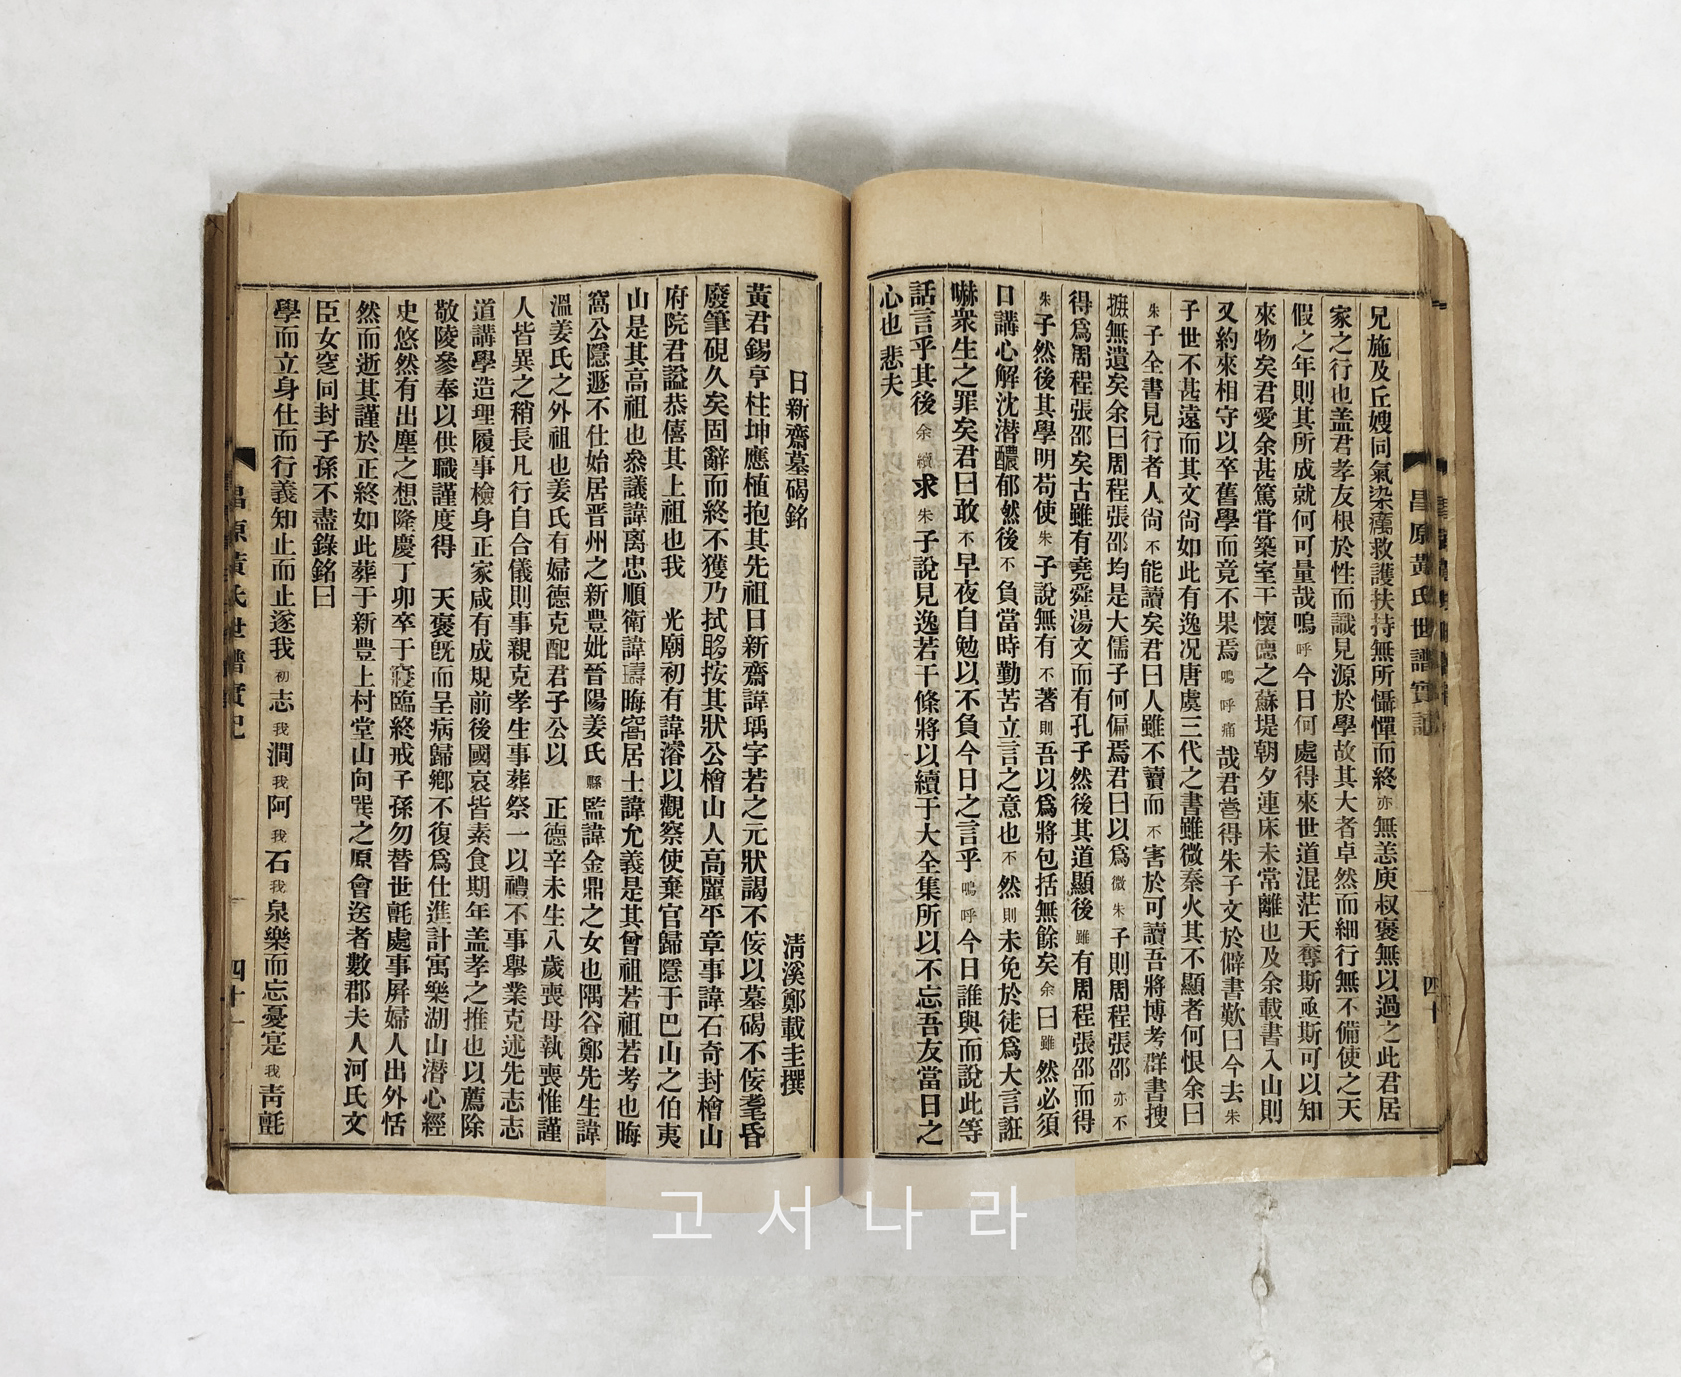 昌原黃氏世譜實記
四十
兄施及丘嫂同氣染癘救護扶持無所懾憚而終亦無恙庾叔褒無以過之此君居
家之行也盖君孝友根於性而識見源於學故其大者卓然而細行無不備使之天
假之年則其所成就何可量哉嗚呼今日何處得來世道混茫天奪斯亟斯可以知
來物矣君愛余甚篤嘗築室于懷德之蘇堤朝夕連床未常離也及余載書入山則
又約來相守以卒舊學而竟不果焉嗚呼痛哉君嘗得朱子文於僻書歎曰今去朱
子世不甚遠而其文尙如此有逸况唐虞三代之書雖微秦火其不顯者何恨余曰
朱子全書見行者人尙不能讀矣君曰人雖不讀而不害於可讀吾將博考群書搜
摭無遺矣余曰周程張邵均是大儒子何偏焉君曰以爲微朱子則周程張邵亦不
得爲周程張邵矣古雖有堯舜湯文而有孔子然後其道顯後雖有周程張邵而得
朱子然後其學明苟使朱子說無有不著則吾以爲將包括無餘矣余曰雖然必須
日講心解沈潜醲郁然後不負當時勤苦立言之意也不然則未免於徒爲大言誑
嚇衆生之罪矣君曰敢不早夜自勉以不負今日之言乎嗚呼今日誰與而說此等
話言乎其後余續求朱子說見逸若干條將以續于大全集所以不忘吾友當日之
心也悲夫
日新齋墓碣銘　淸溪鄭載圭撰
黃君錫亨柱坤應植抱其先祖日新齋諱瑀字若之元狀謁不侫以墓碣不侫耄昏
廢筆硯久矣固辭而終不獲乃拭眵按其狀公檜山人高麗平章事諱石奇封檜山
府院君謚恭僖其上祖也我　光廟初有諱濬以觀察使棄官歸隱于巴山之伯夷
山是其高祖也叅議諱禼忠順衛諱璹晦窩居士諱允義是其曾祖若祖若考也晦
窩公隱遯不仕始居晋州之新豊妣晉陽姜氏縣監諱金鼎之女也隅谷鄭先生諱
溫姜氏之外祖也姜氏有婦德克配君子公以　正德辛未生八歲喪母執喪惟謹
人皆異之稍長凡行自合儀則事親克孝生事葬祭一以禮不事擧業克述先志志
道講學造理履事檢身正家咸有成規前後國哀皆素食期年盖孝之推也以薦除
敬陵參奉以供職謹度得　天褒旣而呈病歸鄕不復爲仕進計寓樂湖山潜心經
史悠然有出塵之想隆慶丁卯卒于寢臨終戒子孫勿替世氈處事屛婦人出外恬
然而逝其謹於正終如此葬于新豊上村堂山向巽之原會送者數郡夫人河氏文
臣女窆同封子孫不盡錄銘曰
學而立身仕而行義知止而止遂我初志我澗我阿我石我泉樂而忘憂寔我靑氈
昌原黃氏世譜實記
四十一
고서나라